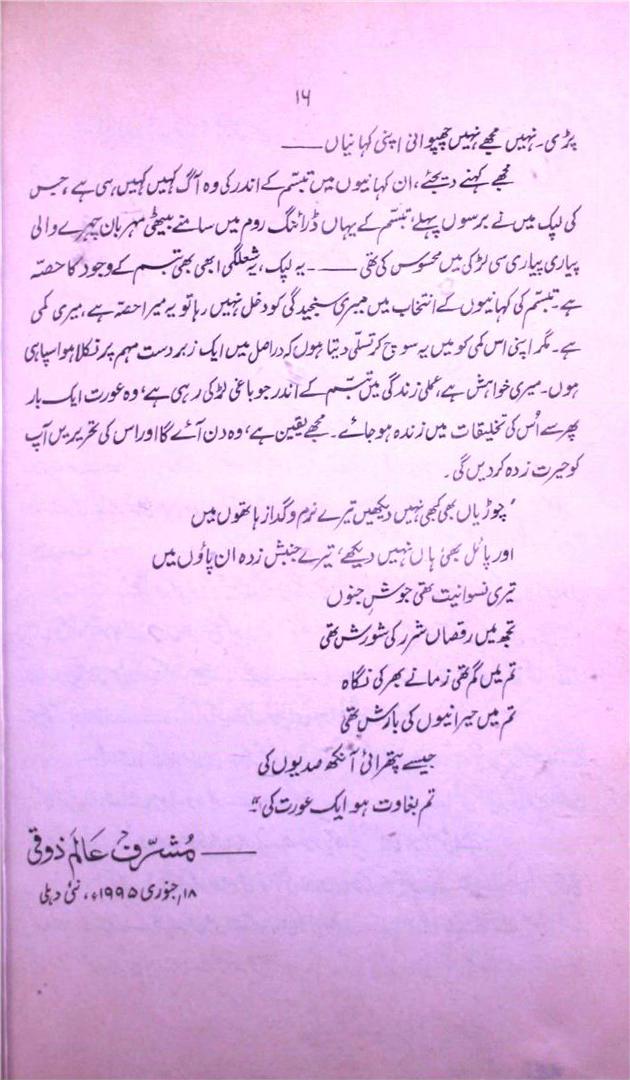 ۱۶
پڑی۔ نہیں مجھے نہیں چھپوانی اپنی کہانیاں ——
مجھے کہنے دیجئے، ان کہانیوں میں تبسّم کے اندر کی وہ آگ کہیں کہیں سی ہے، جس
کی لپک میں نے برسوں پہلے، تبسّم کے یہاں ڈرائنگ روم میں سامنے بیٹھی مہربان چہرے والی
پیاری پیاری سی لڑکی میں محسوس کی تھی —— ۔ یہ لپک، یہ شعلگی ابھی بھی تبسم کے وجود کا حصّہ
ہے۔ تبسّم کی کہانیوں کے انتخاب میں میری سنجیدگی کو دخل نہیں رہا تو یہ میرا حصّہ ہے، میری کمی
ہے۔ مگر اپنی اس کمی کو میں یہ سوچ کر تسلّی دیتا ہوں کہ دراصل میں ایک زبردست مہم پر نکلا ہوا سپاہی
ہوں۔ میری خواہش ہے، عملی زندگی میں تبسّم کے اندر جو باغی لڑکی رہی ہے، وہ عورت ایک بار
پھر سے اُس کی تخلیقات میں زندہ ہو جائے۔ مجھے یقین ہے، وہ دن آئے گا اور اس کی تحریریں آپ
کو حیرت زدہ کر دیں گی۔
’چوڑیاں بھی کبھی نہیں دیکھیں تیرے نرم و گداز ہاتھوں میں
اور پائل بھی ہاں نہیں دیکھے، تیرے جنبش زدہ ان پاؤں میں
تیری نسوانیت تھی جوشِ جنوں
تجھ میں رقصاں شرر کی شورش تھی
تم میں گم تھی زمانے بھر کی نگاہ
تم میں حیرانیوں کی بارش تھی
جیسے پتھرائی آنکھ صدیوں کی
تم بغاوت ہو ایک عورت کی‘‘
—— مشرّف عالم ذوقی
۱۸؍ جنوری ۱۹۹۵ء، نئی دہلی